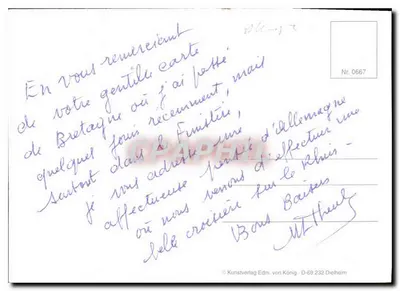 En vous remerciant
de votre gentille carte
de Bretagne où j'ai passé
quelques jours récemment, mais
surtout dans le Finistère,
je vous adresse une
affectueuse pensée d'Allemagne
où nous venons d'effectuer une
belle croisière sur le Rhin -
Bons Baisers
Nr. 0667
© Kunstverlag Edm. von König · D-69 233 Dielheim